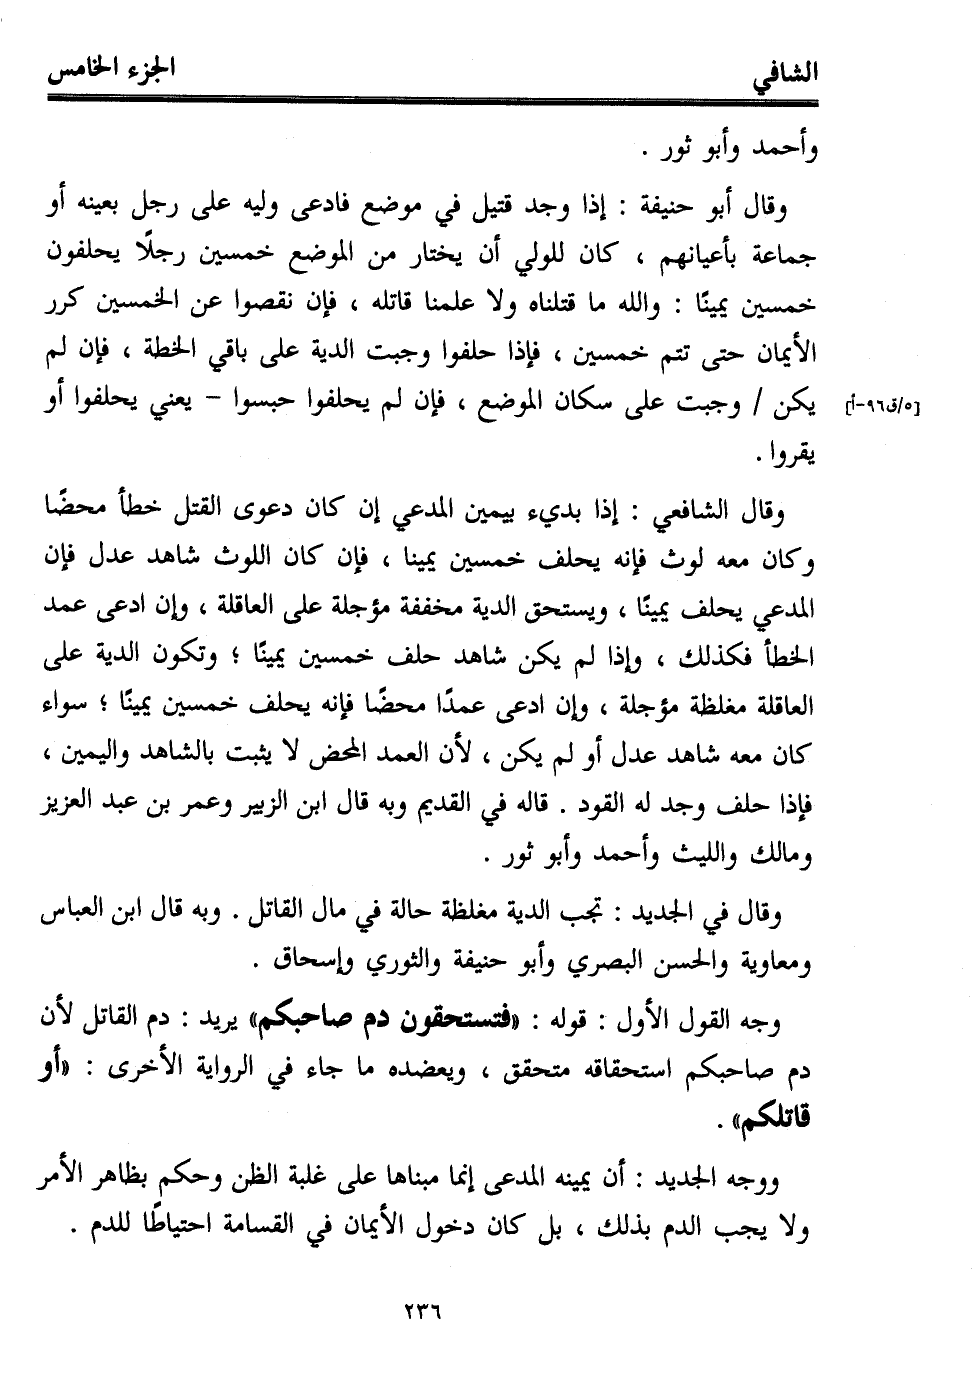 الشافي
الجزء الخامس
وأحمد وأبو ثور .
وقال أبو حنيفة : إذا وجد قتيل في موضع فادعى وليه على رجل بعينه أو
جماعة بأعيانهم ، كان للولي أن يختار من الموضع خمسين رجلًا يحلفون
خمسين يمينًا : والله ما قتلناه ولا علمنا قاتله ، فإن نقصوا عن الخمسين كرر
الأيمان حتى تتم خمسين ، فإذا حلفوا وجبت الدية على باقي الخطة ، فإن لم
يكن / وجبت على سكان الموضع ، فإن لم يحلفوا حبسوا – يعني يحلفوا أو
[٥/ق٩٦-أ]
يقروا .
وقال الشافعي : إذا بديء بيمين المدعي إن كان دعوى القتل خطأ محضًا
وكان معه لوث فإنه يحلف خمسين يمينا ، فإن كان اللوث شاهد عدل فإن
المدعي يحلف يمينًا ، ويستحق الدية مخففة مؤجلة على العاقلة ، وإن ادعى عمد
الخطأ فكذلك ، وإذا لم يكن شاهد حلف خمسين يمينًا ؛ وتكون الدية على
العاقلة مغلظة مؤجلة ، وإن ادعى عمدًا محضًا فإنه يحلف خمسين يمينًا ؛ سواء
كان معه شاهد عدل أو لم يكن ، لأن العمد المحض لا يثبت بالشاهد واليمين ،
فإذا حلف وجد له القود . قاله في القديم وبه قال ابن الزبير وعمر بن عبد العزيز
ومالك والليث وأحمد وأبو ثور .
وقال في الجديد : تجب الدية مغلظة حالة في مال القاتل . وبه قال ابن العباس
ومعاوية والحسن البصري وأبو حنيفة والثوري وإسحاق .
وجه القول الأول : قوله : «فتستحقون دم صاحبكم» يريد : دم القاتل لأن
دم صاحبكم استحقاقه متحقق ، ويعضده ما جاء في الرواية الأخرى : «أو
قاتلكم» .
ووجه الجديد : أن يمينه المدعى إنما مبناها على غلبة الظن وحكم بظاهر الأمر
ولا يجب الدم بذلك ، بل كان دخول الأيمان في القسامة احتياطًا للدم .
٢٣٦